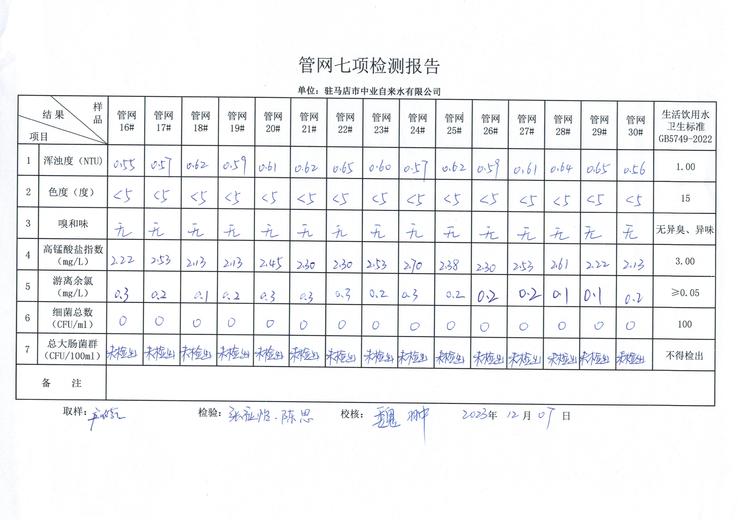 管网七项检测报告
单位：驻马店市中业自来水有限公司
结果 样品 项目 管网16# 管网17# 管网18# 管网19# 管网20# 管网21# 管网22# 管网23# 管网24# 管网25# 管网26# 管网27# 管网28# 管网29# 管网30# 生活饮用水卫生标准GB5749-2022
1 浑浊度（NTU） 0.55 0.57 0.62 0.59 0.61 0.62 0.65 0.60 0.57 0.62 0.59 0.61 0.64 0.65 0.56 1.00
2 色度（度） <5 <5 <5 <5 <5 <5 <5 <5 <5 <5 <5 <5 <5 <5 <5 15
3 嗅和味 无 无 无 无 无 无 无 无 无 无 无 无 无 无 无 无异臭、异味
4 高锰酸盐指数（mg/L） 2.22 2.53 2.13 2.13 2.45 2.30 2.30 2.53 2.70 2.38 2.30 2.53 2.61 2.22 2.13 3.00
5 游离余氯（mg/L） 0.3 0.2 0.1 0.2 0.3 0.3 0.3 0.2 0.3 0.2 0.2 0.2 0.1 0.1 0.2 ≥0.05
6 细菌总数（CFU/ml） 0 0 0 0 0 0 0 0 0 0 0 0 0 0 0 100
7 总大肠菌群（CFU/100ml） 未检出 未检出 未检出 未检出 未检出 未检出 未检出 未检出 未检出 未检出 未检出 未检出 未检出 未检出 未检出 不得检出
备 注
取样： 检验：张 陈思 校核：魏 2023年12月07日